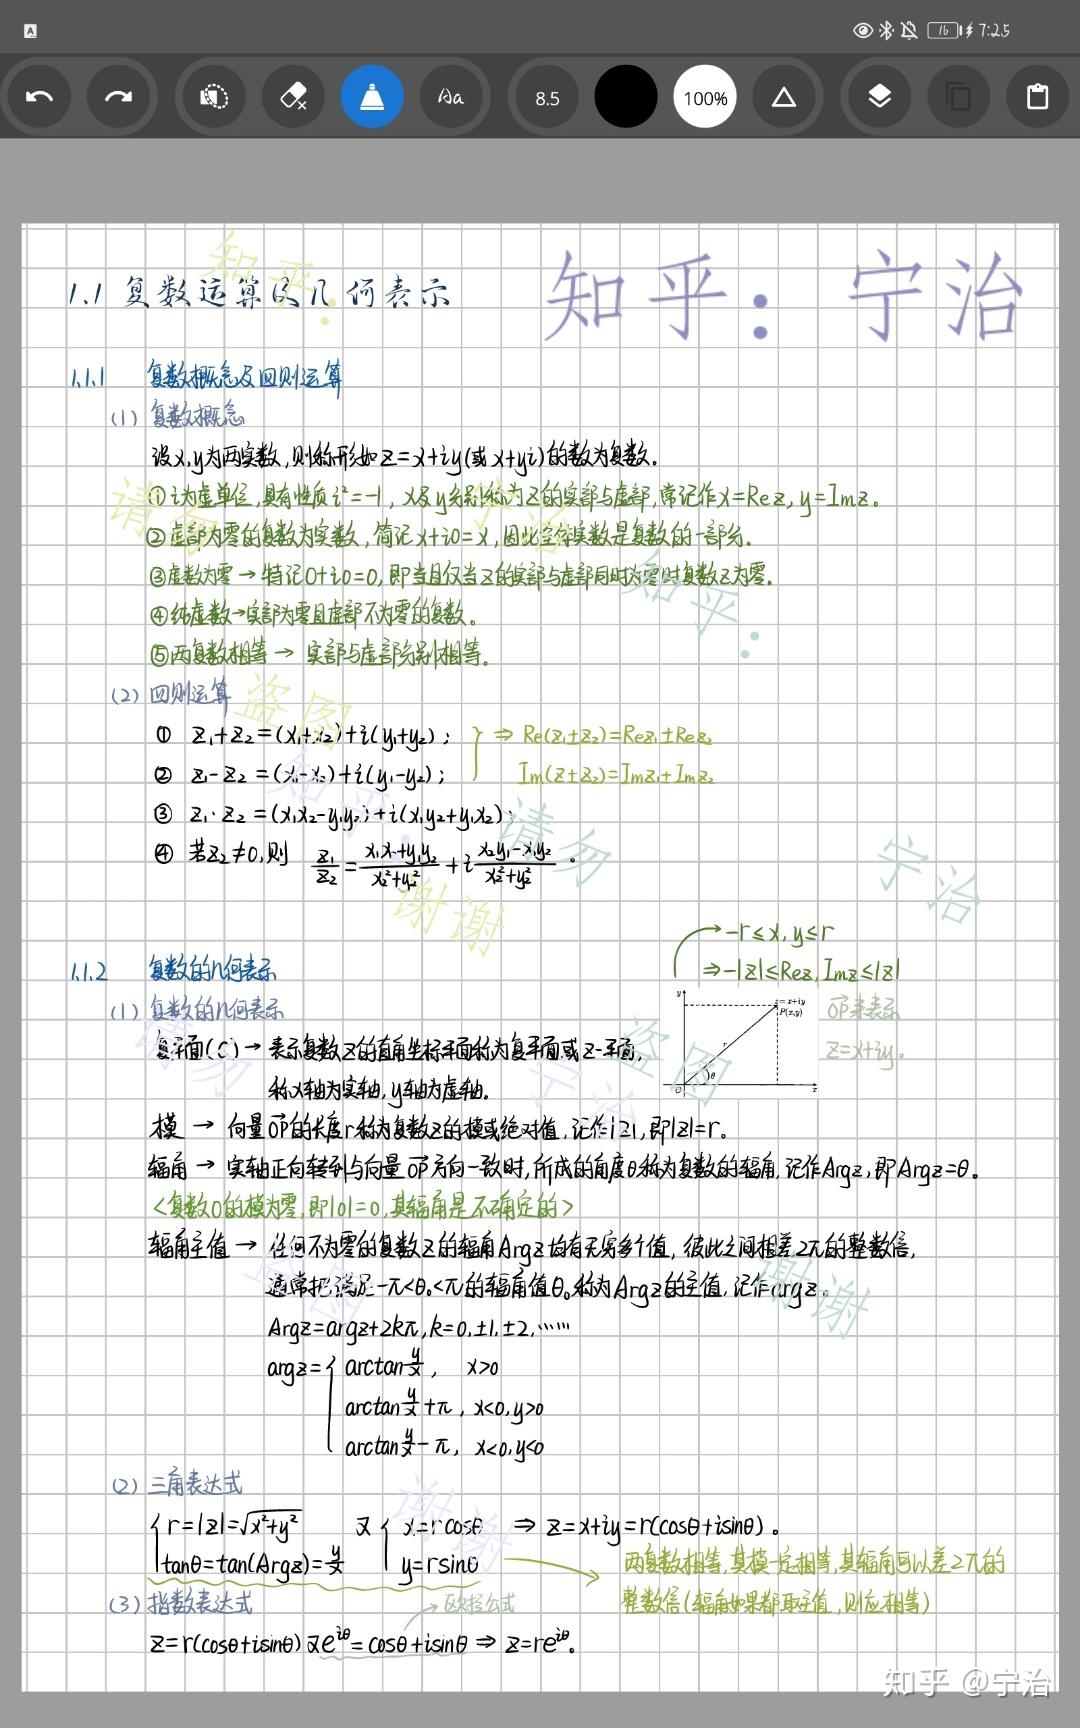 A
16
7:25
Aa
8.5
100%
知乎：宁治
1.1 复数运算及几何表示
1.1.1 复数概念及四则运算
(1) 复数概念
设x,y为两实数,则称形如z=x+iy(或x+yi)的数为复数.
①i为虚单位,具有性质i²=-1, x及y分别称为z的实部与虚部,常记作x=Rez, y=Imz。
②虚部为零的复数为实数,简记x+i0=x,因此全体实数是复数的一部分.
③虚数为零→特记0+i0=0,即当且仅当z的实部与虚部同时为零时复数z为零.
④纯虚数→实部为零且虚部不为零的复数。
⑤两复数相等→ 实部与虚部分别相等.
(2) 四则运算
① z₁+z₂=(x₁+x₂)+i(y₁+y₂);
② z₁-z₂=(x₁-x₂)+i(y₁-y₂);
⇒ Re(z₁±z₂)=Rez₁±Rez₂
Im(z±z₂)=Imz₁±Imz₂
③ z₁·z₂=(x₁x₂-y₁y₂)+i(x₁y₂+y₁x₂);
④ 若z₂≠0,则 z₁/z₂=(x₁x₂+y₁y₂)/(x₂²+y₂²)+i(x₂y₁-x₁y₂)/(x₂²+y₂²)。
1.1.2 复数的几何表示
→-r≤x,y≤r
⇒-|z|≤Rez,Imz≤|z|
(1) 复数的几何表示
y
z=x+iy
P(x,y)
r
θ
O
x
OP来表示
z=x+iy。
复平面(C)→表示复数z的直角坐标平面称为复平面或z-平面,
称x轴为实轴,y轴为虚轴.
模 → 向量OP的长度r称为复数z的模或绝对值,记作|z|,即|z|=r。
辐角 → 实轴正向转到与向量OP方向一致时,所成的角度θ称为复数的辐角,记作Argz,即Argz=θ。
<复数0的模为零,即|0|=0,其辐角是不确定的>
辐角主值 → 任何不为零的复数z的辐角Argz均有无穷多个值,彼此之间相差2π的整数倍,
通常把满足-π<θ₀<π的辐角值θ₀称为Argz的主值,记作argz。
Argz=argz+2kπ,k=0,±1,±2,……
argz={ arctan y/x, x>0
arctan y/x+π, x<0,y>0
arctan y/x-π, x<0,y<0
(2) 三角表达式
{r=|z|=√x²+y² 又 {x=rcosθ ⇒ z=x+iy=r(cosθ+isinθ)。
tanθ=tan(Argz)=y/x y=rsinθ
两复数相等,其模一定相等,其辐角可以差2π的
整数倍(辐角如果都取主值,则应相等)
(3) 指数表达式
→欧拉公式
z=r(cosθ+isinθ)又e^{iθ}=cosθ+isinθ⇒z=re^{iθ}。
知乎：
请勿
宁治
知乎：
盗图
知乎：
请勿
谢谢
宁治
请勿
盗图
宁治
盗图
谢谢
谢谢
知乎 @宁治